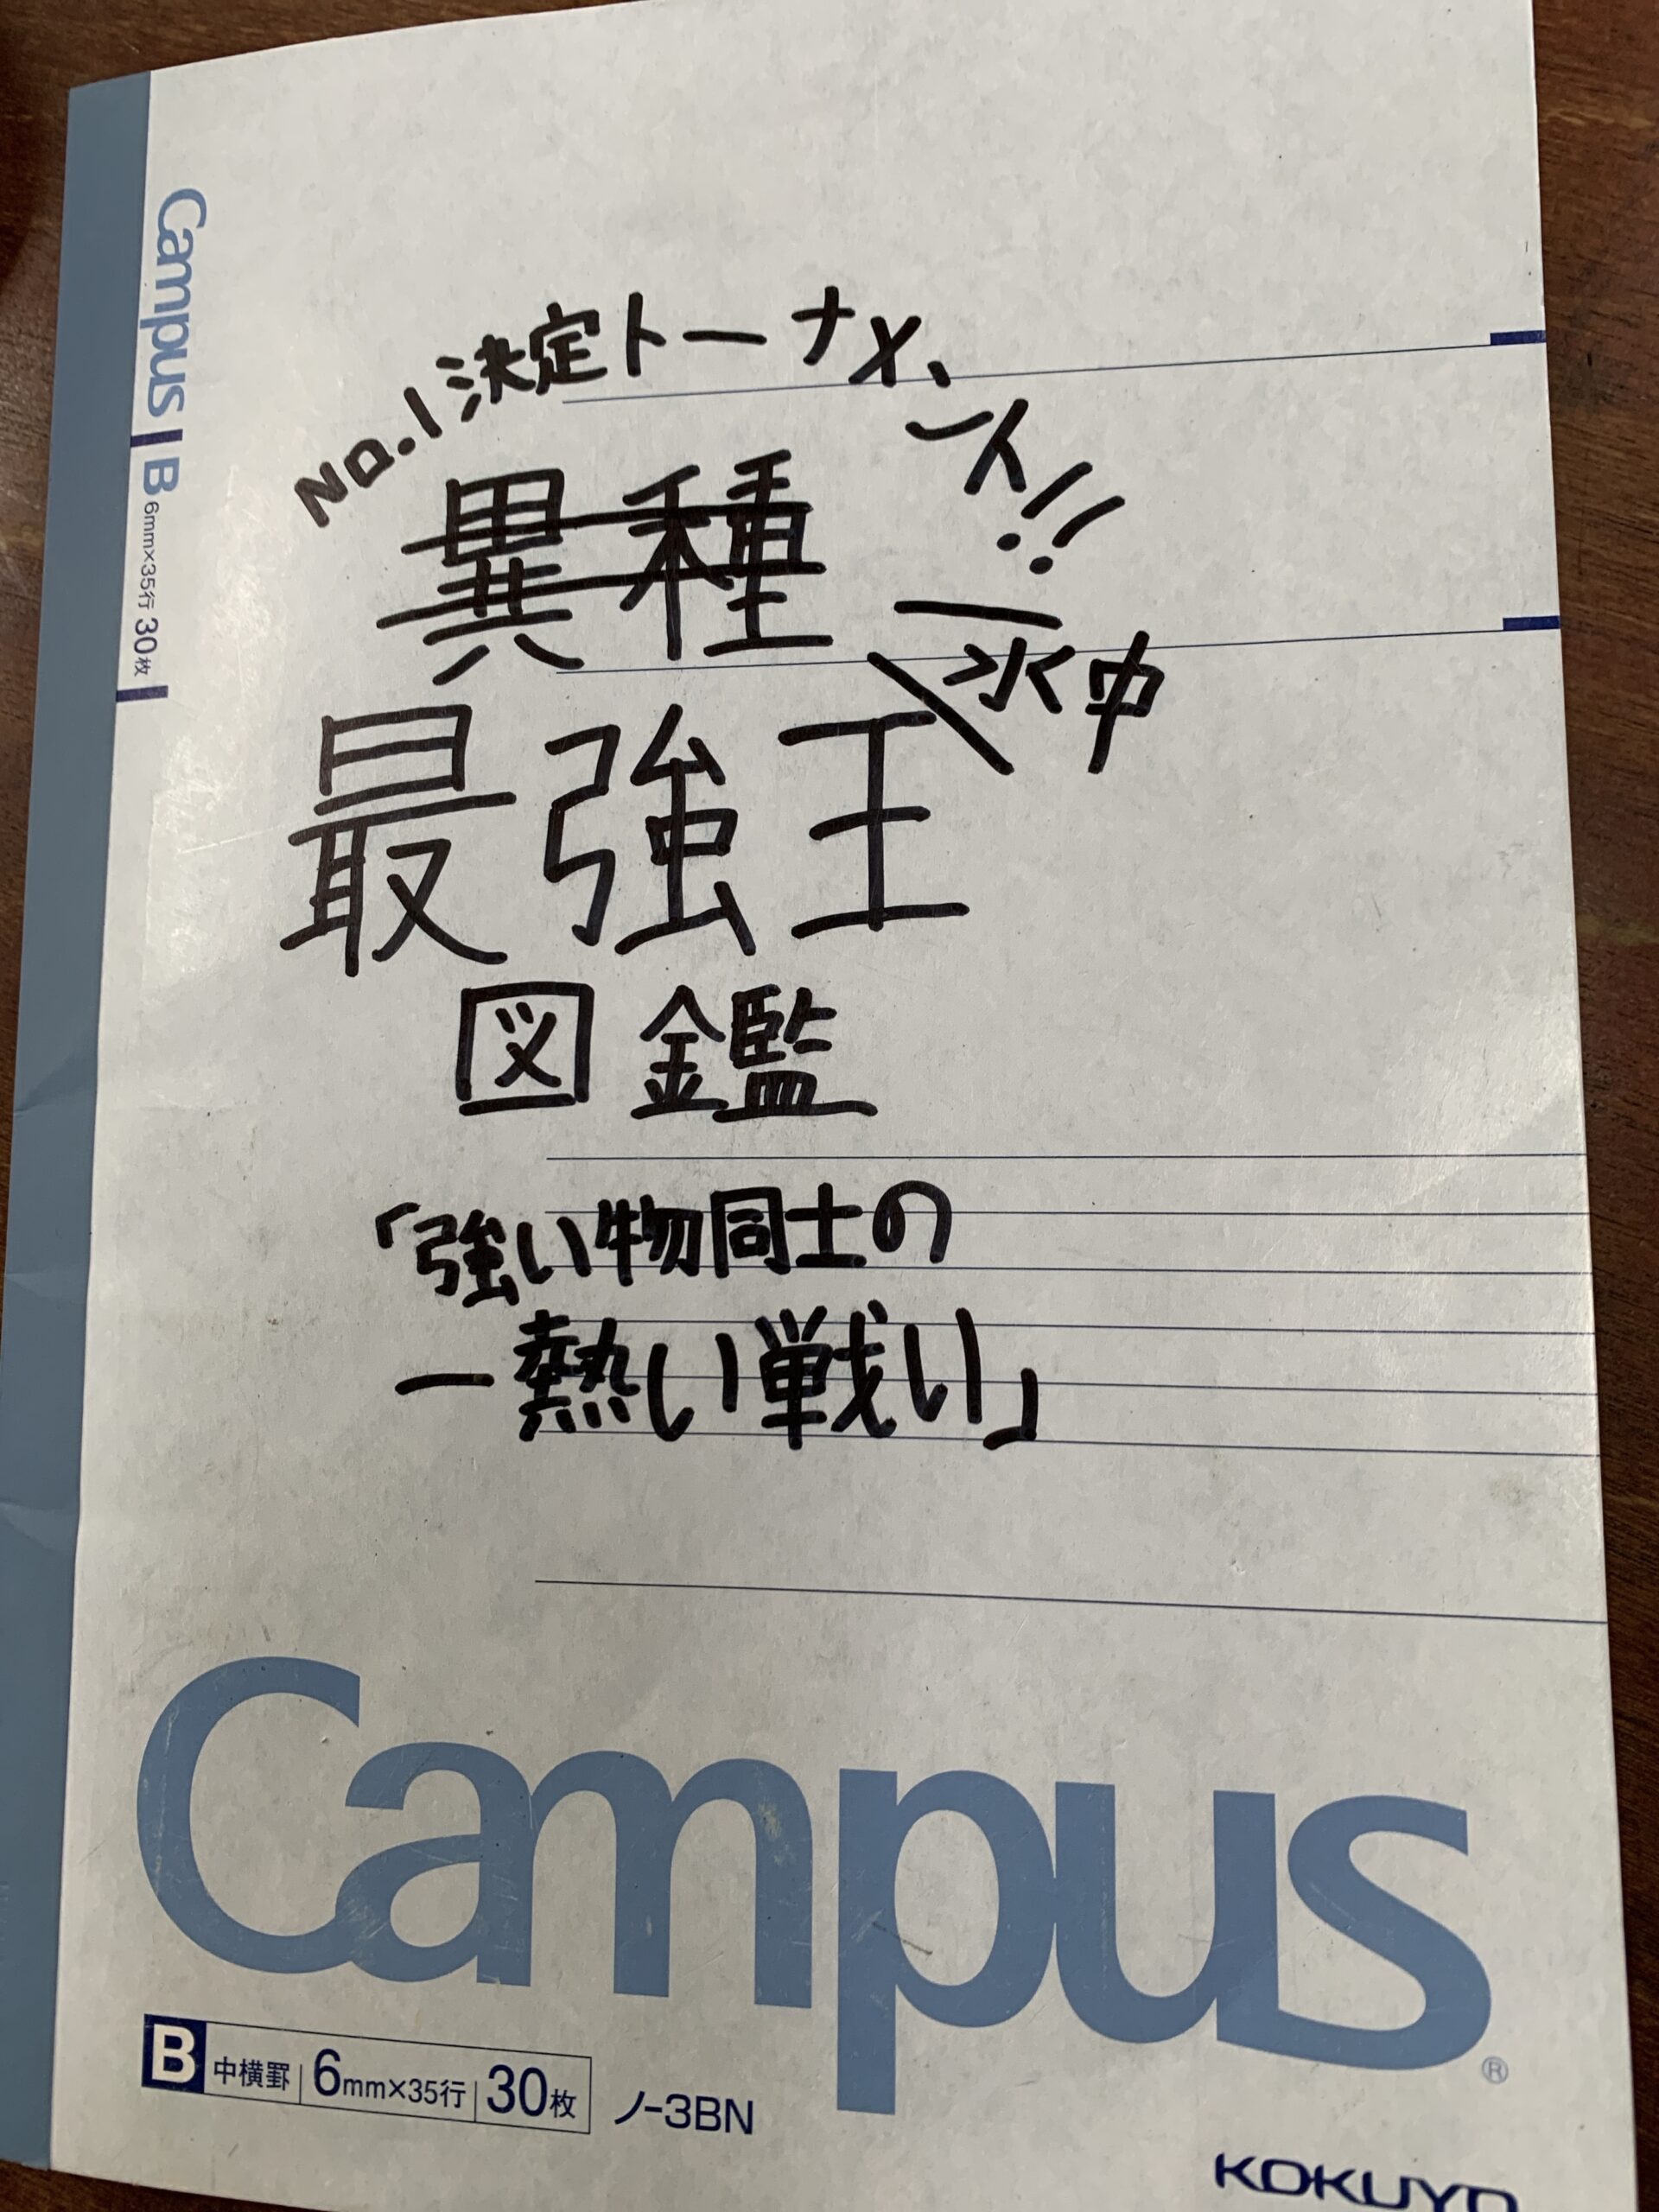 Campus B 6mm×35行 30枚
No.1決定トーナメント!!
異種
水中
最強王
図鑑
「強い物同士の
一熱い戦い」
Campus®
B 中横罫 6mm×35行 30枚 ノ-3BN
KOKUYO